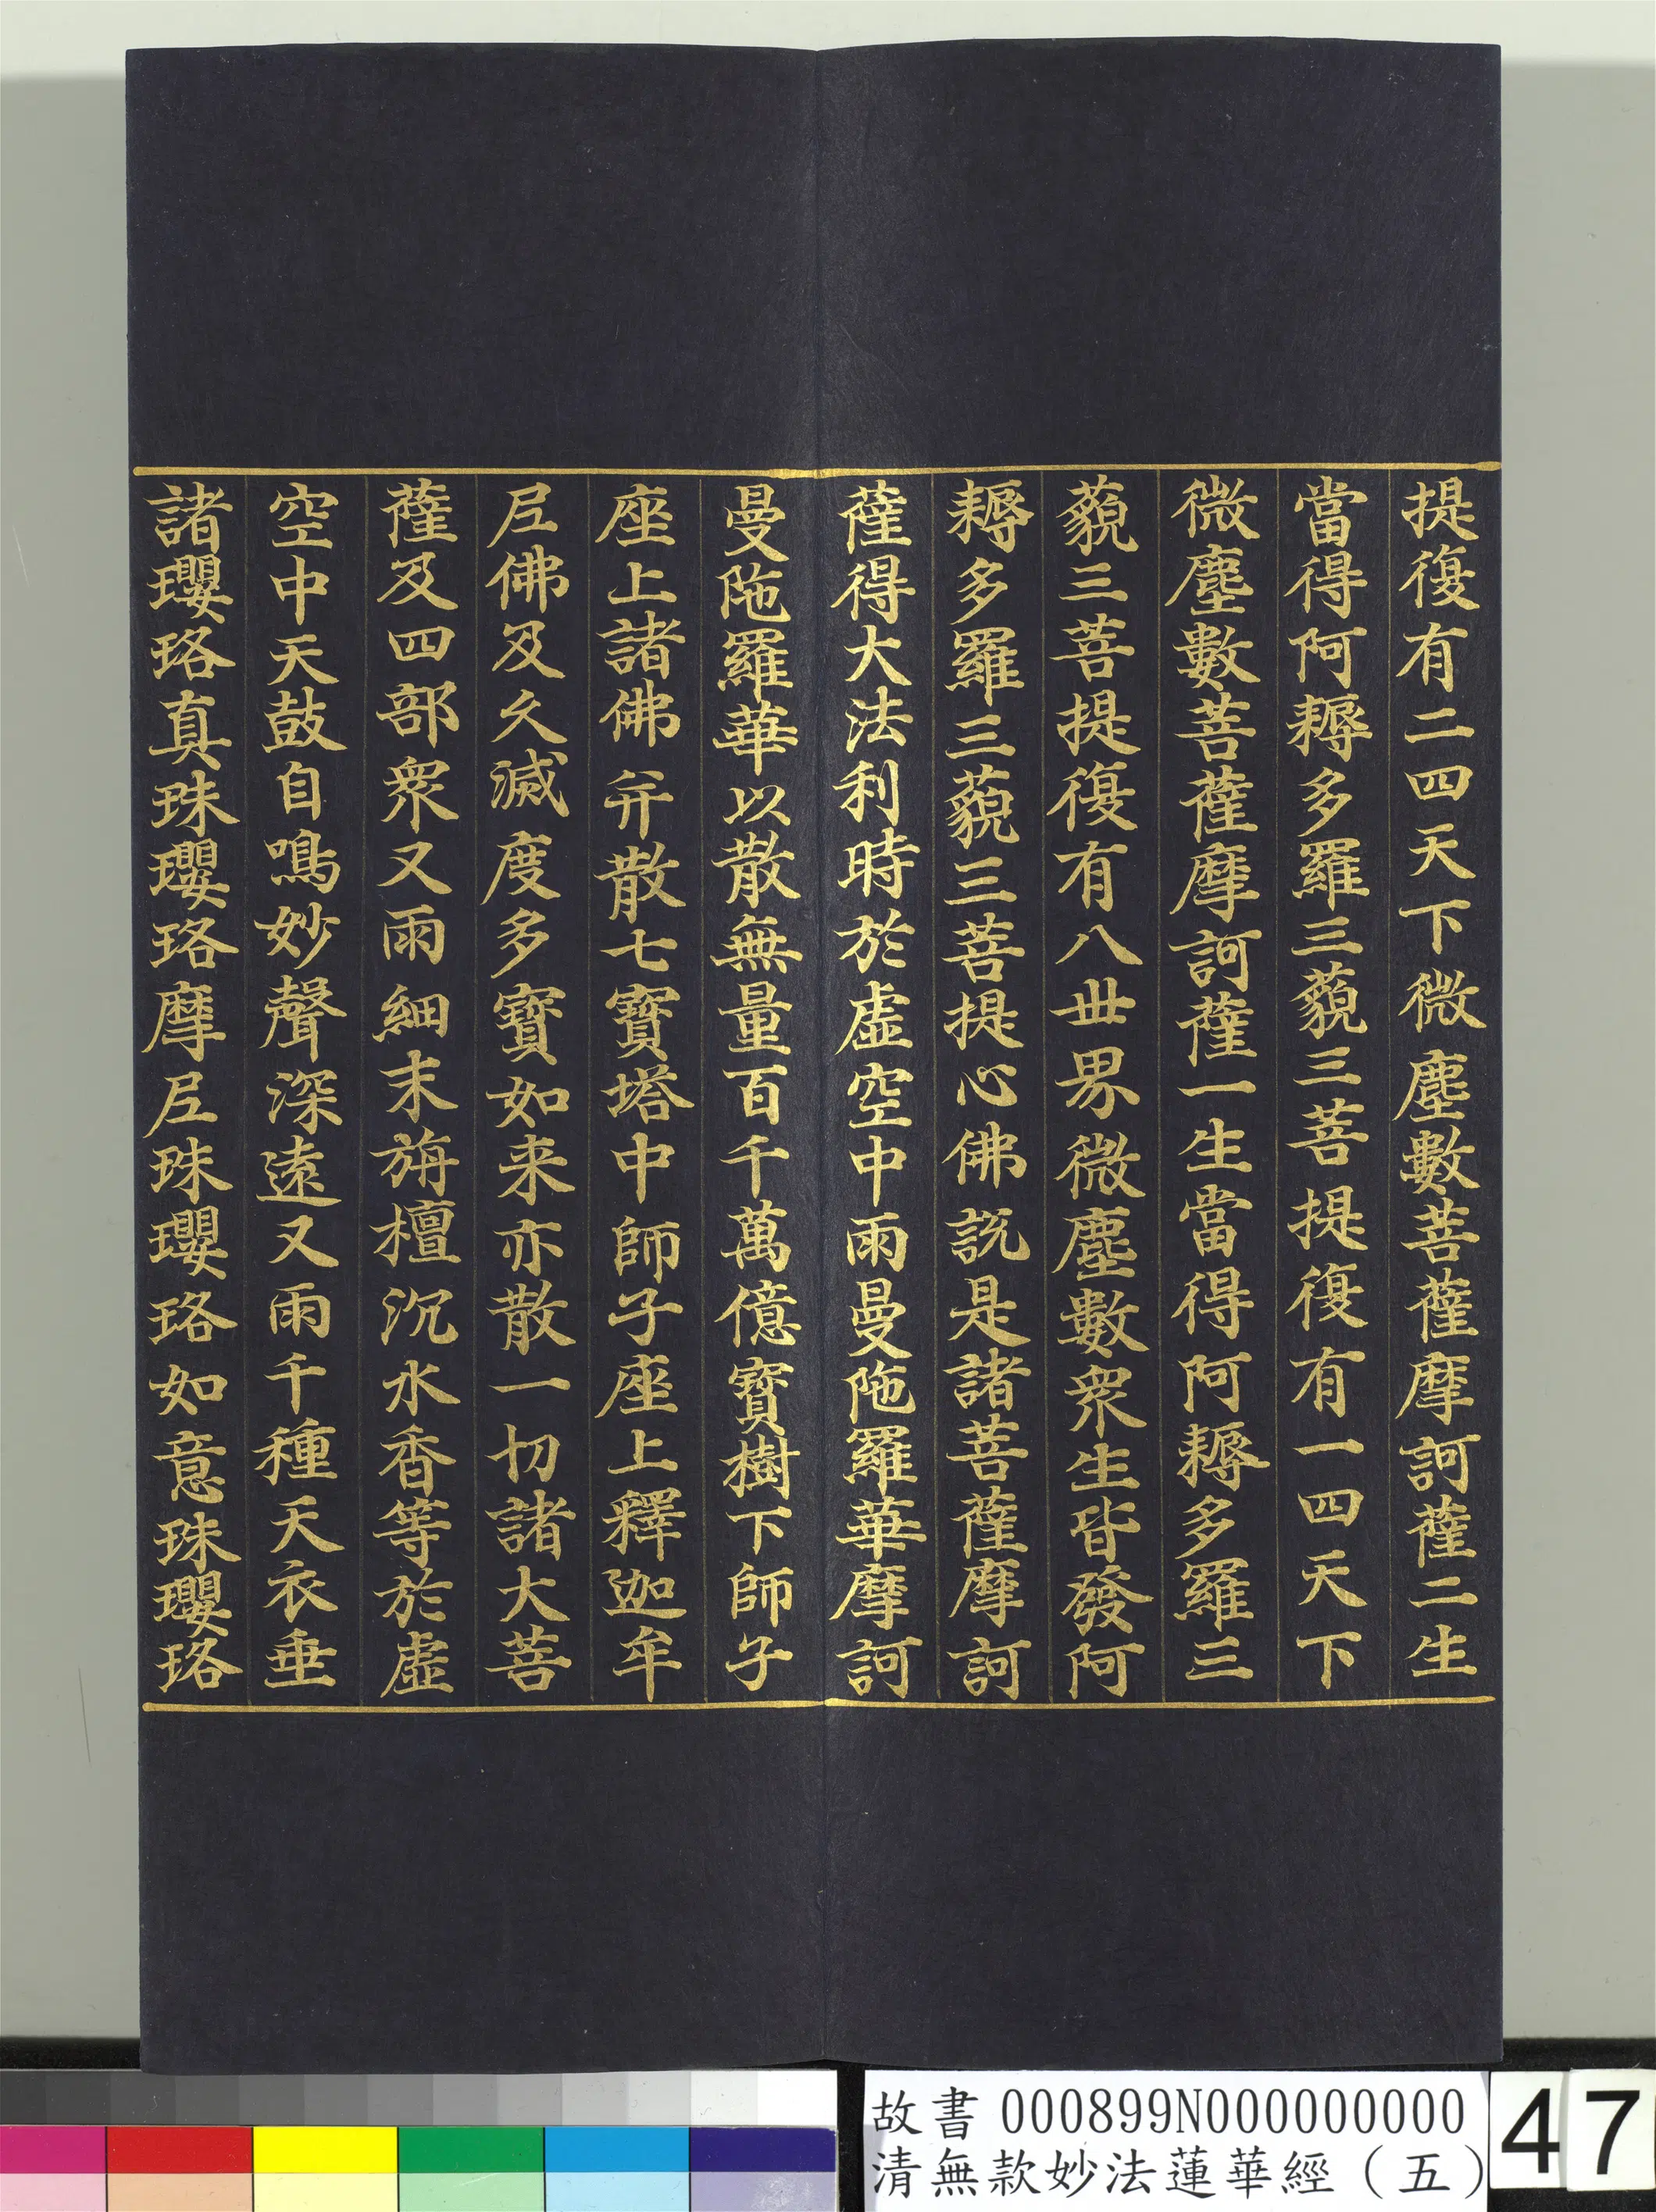 提復有二四天下微塵數菩薩摩訶薩二生
當得阿耨多羅三藐三菩提復有一四天下
微塵數菩薩摩訶薩一生當得阿耨多羅三
藐三菩提復有八世界微塵數衆生皆發阿
耨多羅三藐三菩提心佛說是諸菩薩摩訶
薩得大法利時於虛空中雨曼陁羅華摩訶
曼陁羅華以散無量百千萬億寶樹下師子
座上諸佛并散七寶塔中師子座上釋迦牟
尼佛及久滅度多寶如来亦散一切諸大菩
薩及四部衆又雨細末旃檀沉水香等於虛
空中天鼓自鳴妙聲深遠又雨千種天衣垂
諸瓔珞真珠瓔珞摩尼珠瓔珞如意珠瓔珞
故書 000899N000000000
清無款妙法蓮華經（五）
47